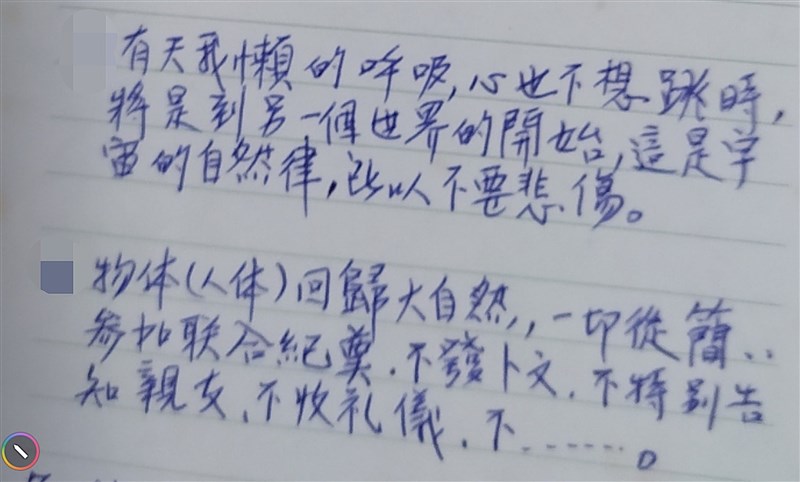 有天我懶的呼吸,心也不想跳時,
將是到另一個世界的開始,這是宇
宙的自然律,所以不要悲傷。
物体(人体)回歸大自然,,一切從簡..
參加联合紀奠.不發卜文.不特別告
知親友.不收礼儀.不......。